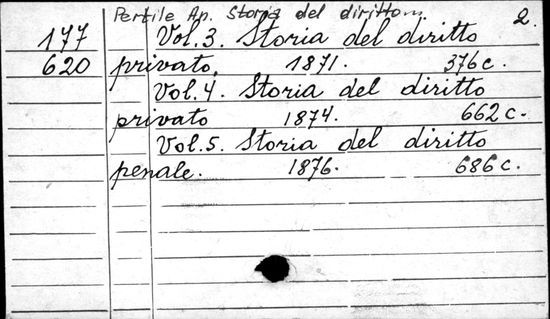 Pertile Ap. Storia del diritto... 2.
177 Vol. 3. Storia del diritto
620 privato. 1871. 376 c.
Vol. 4. Storia del diritto
privato 1874. 662 c.
Vol. 5. Storia del diritto
penale. 1876. 686 c.